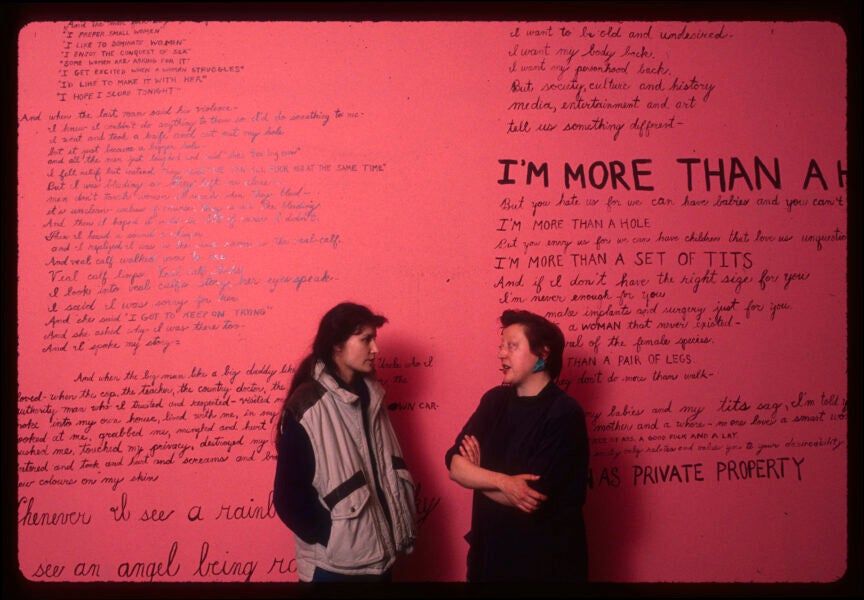 And the men
"I PREFER SMALL WOMEN"
"I LIKE TO DOMINATE WOMEN"
"I ENJOY THE CONQUEST OF SEX"
"SOME WOMEN ARE ASKING FOR IT"
"I GET EXCITED WHEN A WOMAN STRUGGLES"
"I'D LIKE TO MAKE IT WITH HER"
"I HOPE I SCORE TONIGHT"
And when the last man said his violence-
I knew I couldn't do anything to them so I'd do something to me-
I went and took a knife and cut out my hole
but it just became a bigger hole-
and all the men just laughed and said "she's too big now"
I felt relief but instead they FUCK HER AT THE SAME TIME"
But I was bleeding so they left me alone-
men don't touch women when they bleed-
it's unclean
And then I hoped I didn't
Then I heard a sound
and I realized I was in the same room as the veal calf.
And veal calf walked over to me
Veal calf limps. Veal calf
I look into veal calf's her eyes speak-
I said I was sorry for her
And she said "I GOT TO KEEP ON TRYING"
And she asked why I was there too-
And I spoke my story-
And when the big man like a big daddy like Uncle who I
loved- when the cop, the teacher, the country doctor, the the
authority man who I trusted and respected- visited
broke into my own house, lived with me, in my OWN CAR-
looked at me, grabbed me, mangled and hurt
pushed me, touched my privacy, destroyed my
entered and took and hurt and screams and
new colours on my skin
Whenever I see a rainbow
see an angel being
I want to be old and undesired-
I want my body back.
I want my personhood back.
But society, culture and history
media, entertainment and art
tell us something different-
I'M MORE THAN A H
But you hate us for we can have babies and you can't
I'M MORE THAN A HOLE
But you envy us for we can have children that love us
I'M MORE THAN A SET OF TITS
And if I don't have the right size for you
I'm never enough for you
make implants and surgery just for you.
a WOMAN that never existed-
of the female species.
THAN A PAIR OF LEGS.
they don't do more than walk-
my babies and my tits sag, I'm told
mother and a whore- no one loves a smart
A GOOD FUCK AND A LAY.
to your desirability
AS PRIVATE PROPERTY